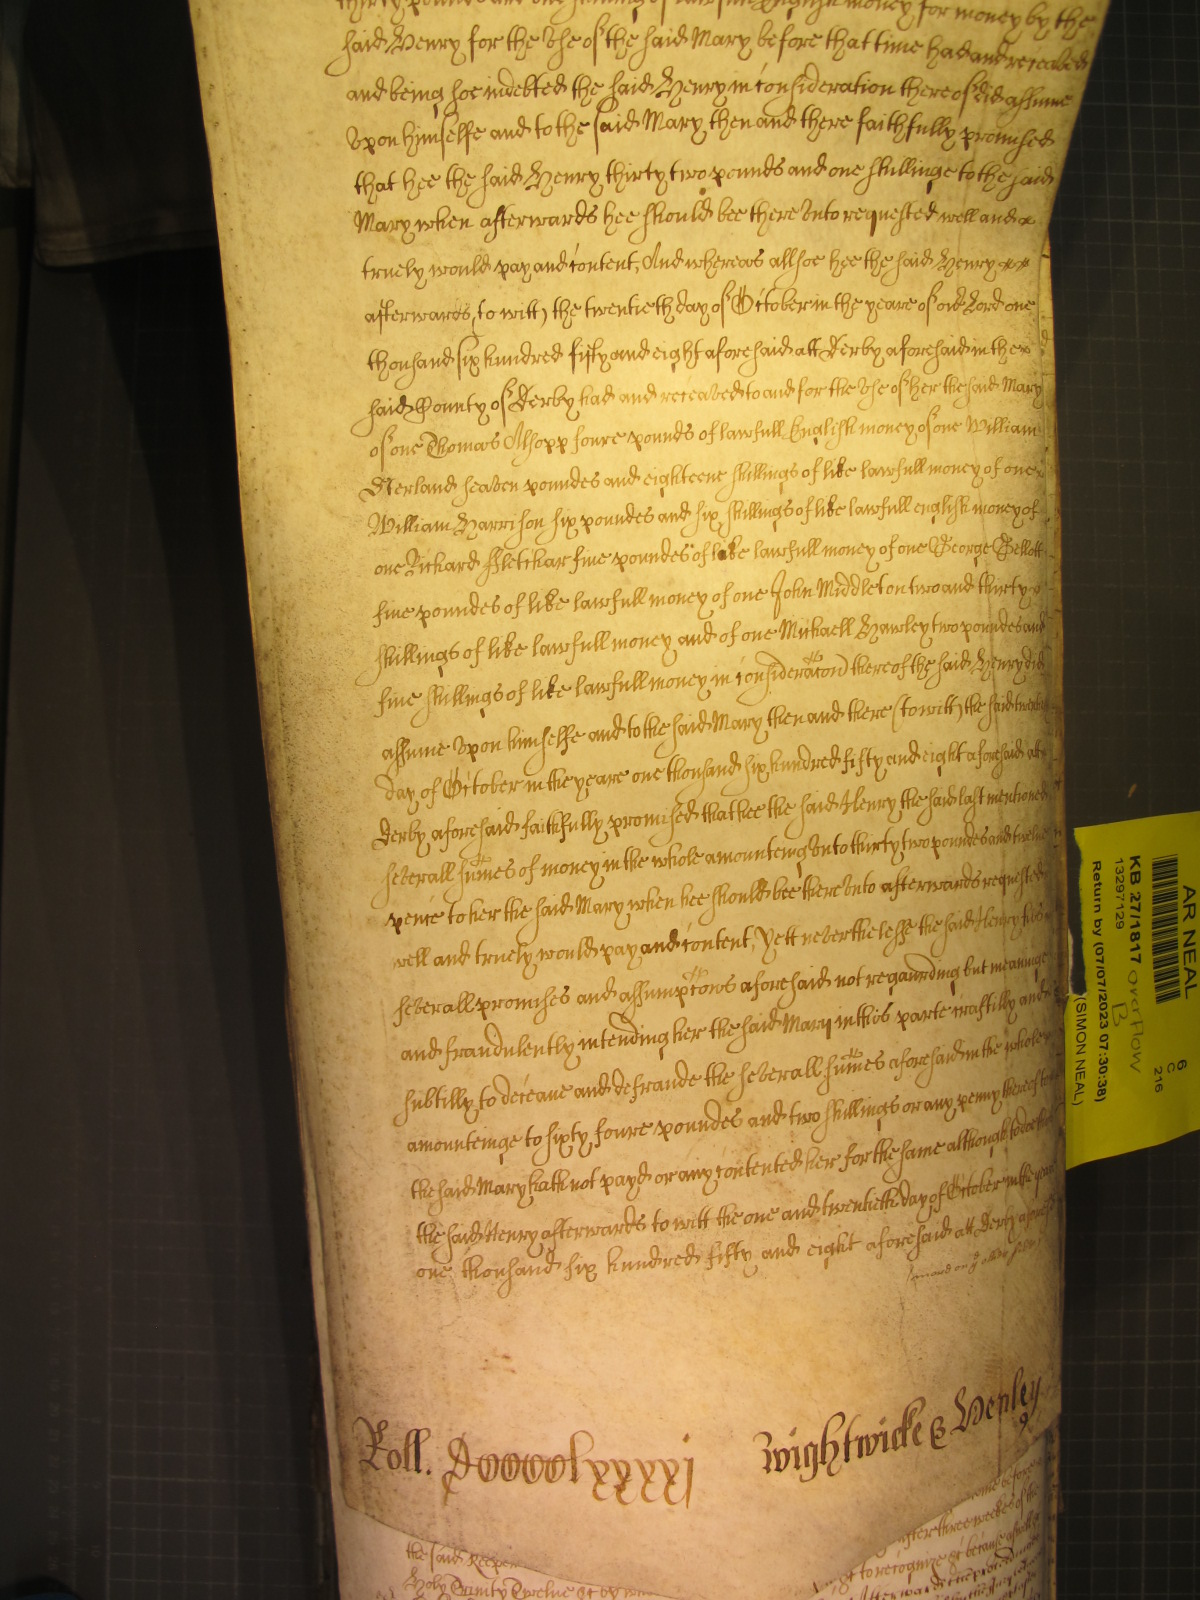 thirty poundes and one shillinge of lawfull English money for money by the
said Henry for the vse of the said Mary before that time had and receaved
and being soe indebted the said Henry in consideration thereof did assume
vpon himselfe and to the said Mary then and there faithfully promised
that hee the said Henry thirty two poundes and one shillinge to the said
Mary when afterwards hee should bee there vnto requested well and
truely would pay and content, And whereas allsoe hee the said Henry
afterwards, (to witt) the twentieth day of October in the yeare of our Lord one
thousand six hundred fifty and eight aforesaid att Derby aforesaid in the
said County of Derby had and receaved to and for the vse of her the said Mary
of one Thomas Alsopp foure pounds of lawfull English money of one William
Nerland seaven poundes and eighteene shillings of like lawfull money of one
William Harrison six poundes and six shillings of like lawfull english money of
one Richard ffletchar five poundes of like lawfull money of one George Bellott
five poundes of like lawfull money of one John Middleton two and thirty
shillings of like lawfull money and of one Michaell Hawley two poundes and
five shillings of like lawfull money in consideracon thereof the said Henry did
assume vpon himselfe and to the said Mary then and there (to witt) the said twentieth
day of October in the yeare one thousand six hundred fifty and eight aforesaid att
Derby aforesaid faithfully promised that hee the said Henry the said last mentioned
severall sumes of money in the whole amounteing vnto thirty two poundes and twelve
pence to her the said Mary when hee should bee there vnto afterwards requested
well and truely would pay and content, Yett neverthelesse the said Henry his
severall promises and assumptcons aforesaid not regaurding but meaninge
and fraudulently intending her the said Mary in this parte craftilly and
subtilly to deceave and defraude the severall sumes aforesaid in the whole
amounteinge to sixty foure poundes and two shillings or any penny thereof to
the said Mary hath not payd or any contented her for the same although to doe
the said Henry afterwards to witt the one and twentieth day of October in the yeare
one thousand six hundred fifty and eight aforesaid att Derby aforesaid
Roll. DCCCClxxxxj Wightwicke & Henley
9
the said Keepers
Holy Trinity Twelve
come before
after three weekes of the
to recognize
AR NEAL
KB 27/1817 overflow
B
13297129
Return by (07/07/2023 07:30:38)
(SIMON NEAL)
6
C
216